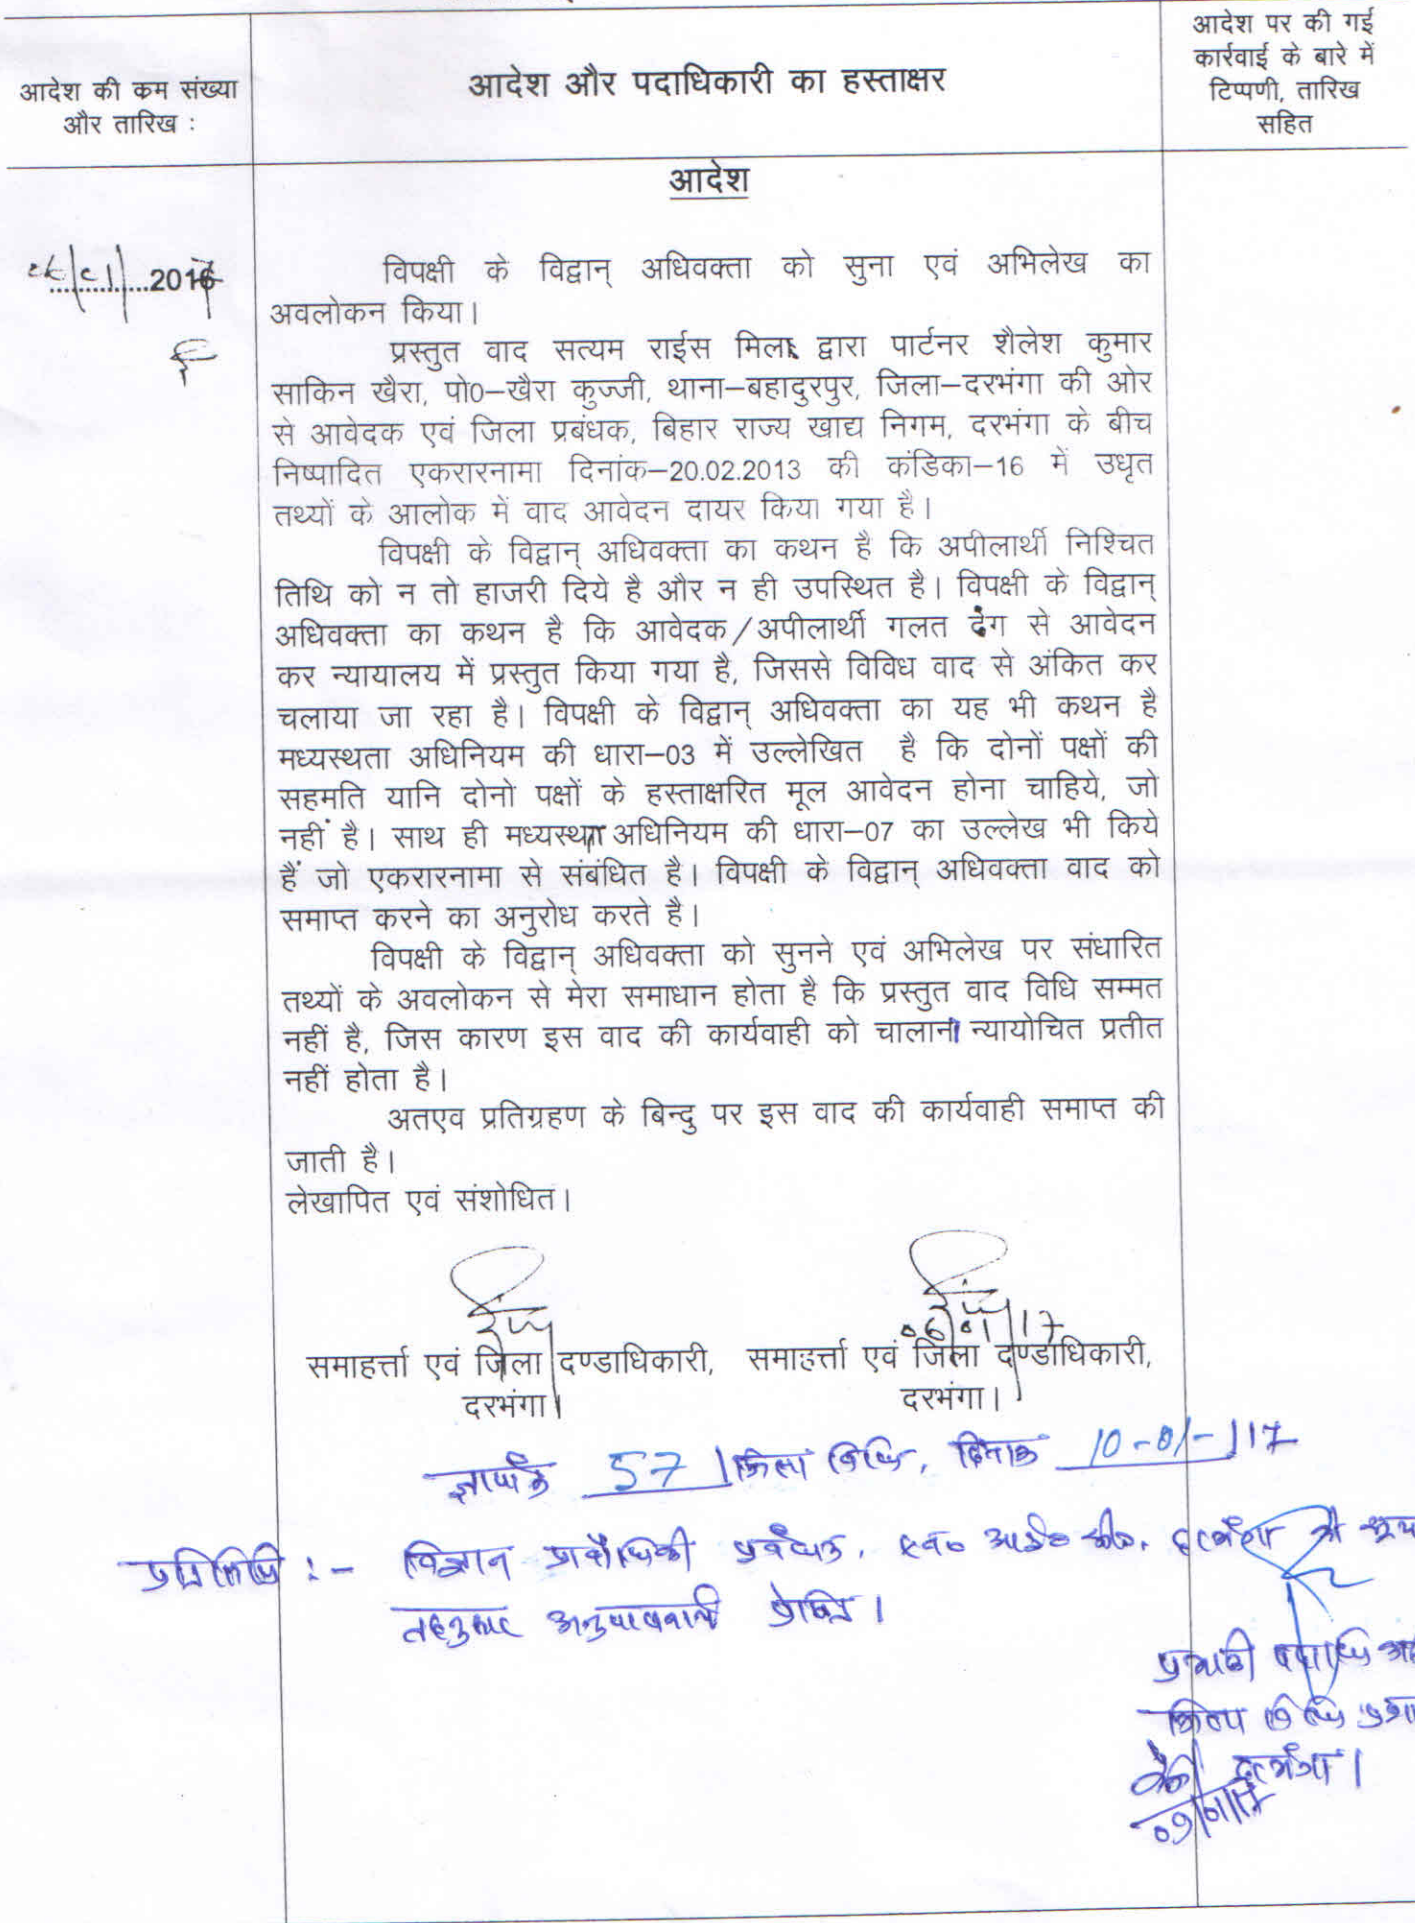 आदेश की कम संख्या
और तारिख :
आदेश और पदाधिकारी का हस्ताक्षर
आदेश पर की गई
कार्रवाई के बारे में
टिप्पणी, तारिख
सहित
आदेश
2017
विपक्षी के विद्वान् अधिवक्ता को सुना एवं अभिलेख का
अवलोकन किया।
प्रस्तुत वाद सत्यम राईस मिल द्वारा पार्टनर शैलेश कुमार
साकिन खैरा, पो0–खैरा कुज्जी, थाना–बहादुरपुर, जिला–दरभंगा की ओर
से आवेदक एवं जिला प्रबंधक, बिहार राज्य खाद्य निगम, दरभंगा के बीच
निष्पादित एकरारनामा दिनांक–20.02.2013 की कंडिका–16 में उधृत
तथ्यों के आलोक में वाद आवेदन दायर किया गया है।
विपक्षी के विद्वान् अधिवक्ता का कथन है कि अपीलार्थी निश्चित
तिथि को न तो हाजरी दिये है और न ही उपस्थित है। विपक्षी के विद्वान्
अधिवक्ता का कथन है कि आवेदक/अपीलार्थी गलत ढंग से आवेदन
कर न्यायालय में प्रस्तुत किया गया है, जिससे विविध वाद से अंकित कर
चलाया जा रहा है। विपक्षी के विद्वान् अधिवक्ता का यह भी कथन है
मध्यस्थता अधिनियम की धारा–03 में उल्लेखित है कि दोनों पक्षों की
सहमति यानि दोनो पक्षों के हस्ताक्षरित मूल आवेदन होना चाहिये, जो
नहीं है। साथ ही मध्यस्थता अधिनियम की धारा–07 का उल्लेख भी किये
हैं जो एकरारनामा से संबंधित है। विपक्षी के विद्वान् अधिवक्ता वाद को
समाप्त करने का अनुरोध करते है।
विपक्षी के विद्वान् अधिवक्ता को सुनने एवं अभिलेख पर संधारित
तथ्यों के अवलोकन से मेरा समाधान होता है कि प्रस्तुत वाद विधि सम्मत
नहीं है, जिस कारण इस वाद की कार्यवाही को चालाना न्यायोचित प्रतीत
नहीं होता है।
अतएव प्रतिग्रहण के बिन्दु पर इस वाद की कार्यवाही समाप्त की
जाती है।
लेखापित एवं संशोधित।
06/01/17
समाहर्त्ता एवं जिला दण्डाधिकारी, समाहर्त्ता एवं जिला दण्डाधिकारी,
दरभंगा। दरभंगा।
ज्ञापांक 57 / जिला विधि, दिनांक 10-01-17
प्रतिलिपि :- विज्ञान प्रावैधिकी प्रबंधक, एन० आई० सी०, दरभंगा को
तदनुसार अनुपालनार्थ प्रेषित।
प्रभारी
जिला विधि
दरभंगा।
09/01/17